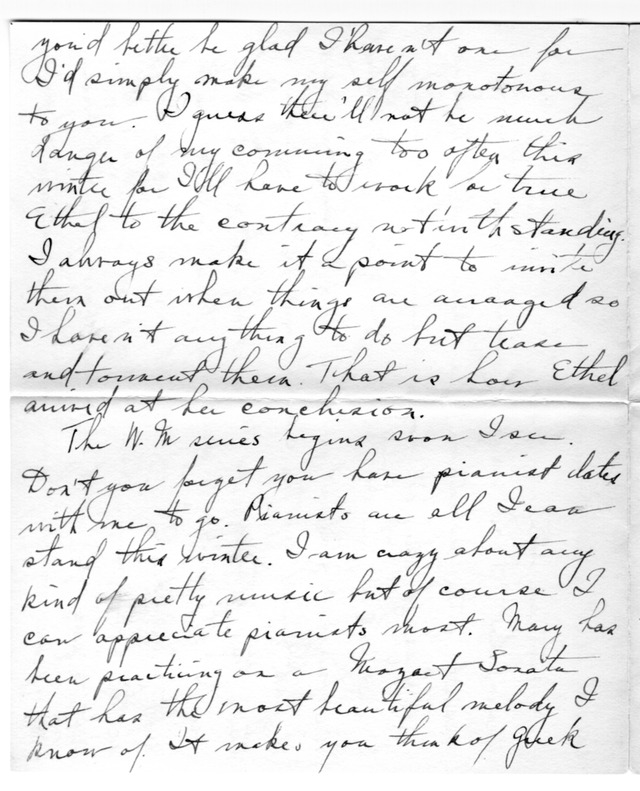 you'd better be glad I haven't one for
I'd simply make my self monotonous
to you. I guess there'll not be much
danger of my comming too often this
winter for I'll have to work
Ethel to the contrary not withstanding.
I always make it a point to invite
them out when things are arranged so
I haven't anything to do but tease
and torment them. That is how Ethel
arrived at her conclusion.
The W. M series begins soon I see.
Don't you forget you have pianist dates
with me to go. Pianists are all I can
stand this winter. I am crazy about any
kind of pretty music but of course I
can appreciate pianists most. Mary has
been practicing on a Mozart Sonata
that has the most beautiful melody I
know of. It makes you think of Greek